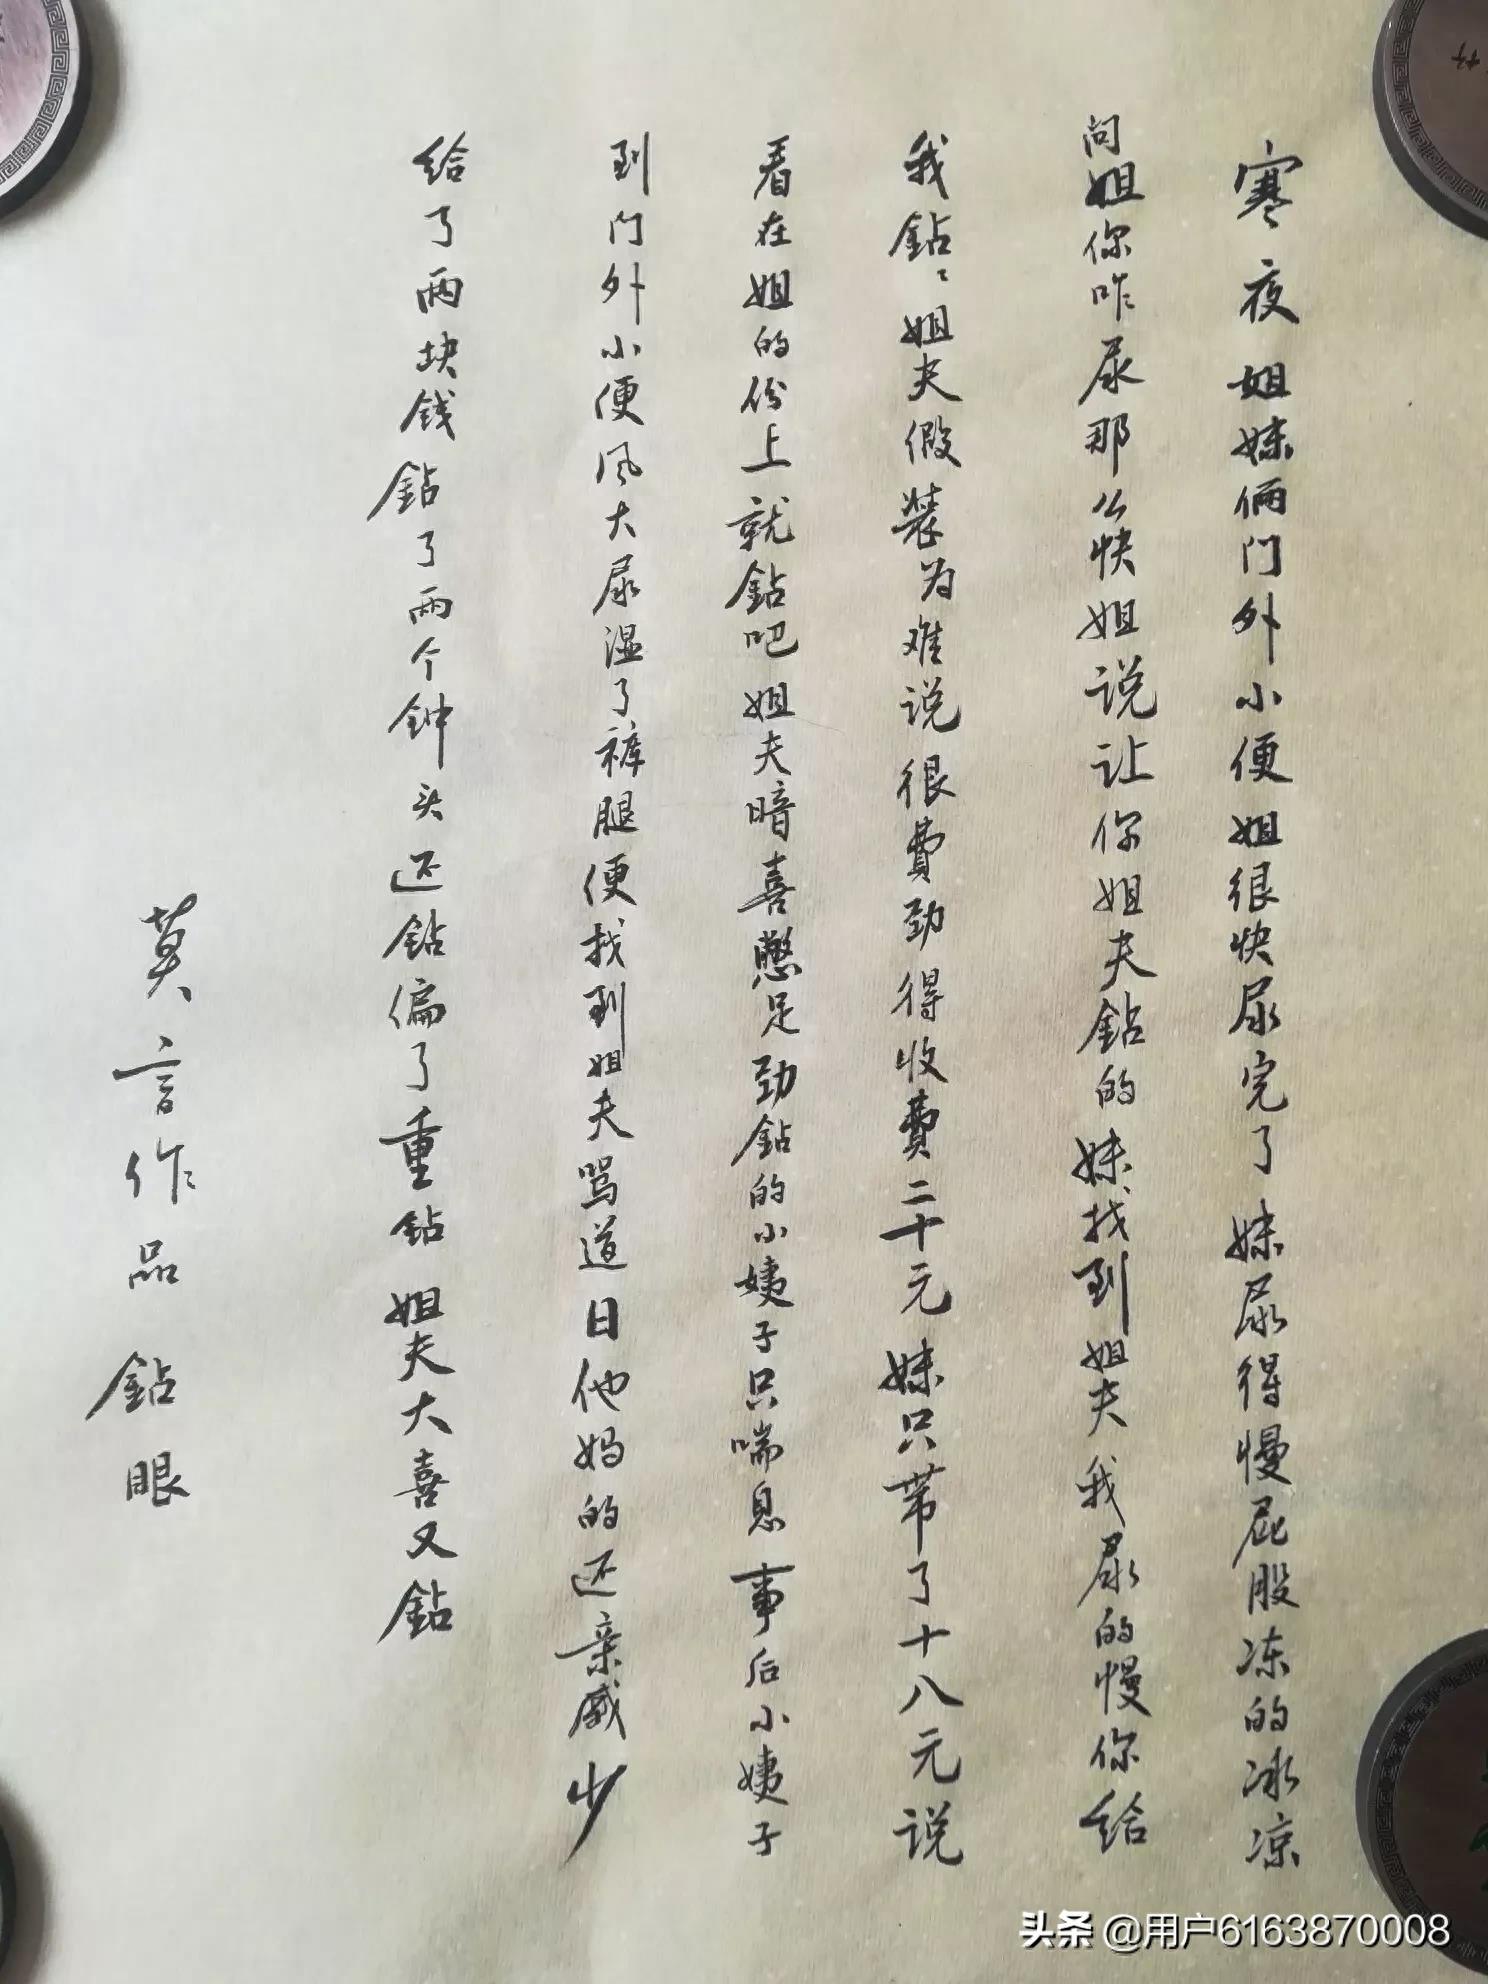 寒夜姐妹俩门外小便姐很快尿完了妹尿得慢屁股冻的冰凉
问姐你咋尿那么快姐说让你姐夫鉆的妹找到姐夫我尿的慢你给
我鉆鉆姐夫假装为难说很費劲得收費二十元妹只带了十八元说
看在姐的份上就鉆吧姐夫暗喜憋足劲鉆的小姨子只喘息事后小姨子
到门外小便风大尿湿了裤腿便找到姐夫骂道日他妈的还亲戚少
给了两块钱鉆了两个钟头还鉆偏了重鉆姐夫大喜又鉆
莫言作品鉆眼
头条@用户6163870008